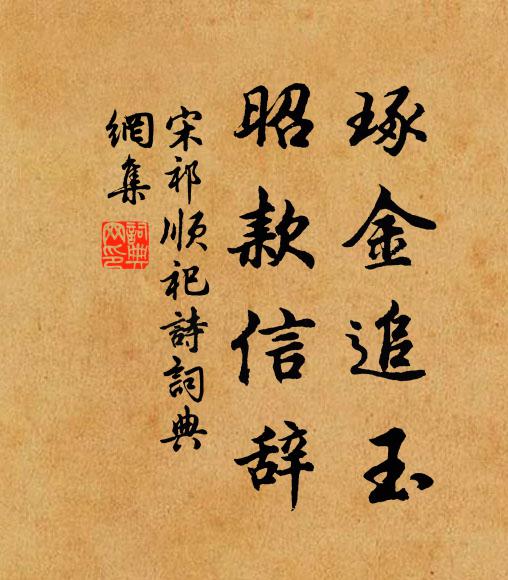 琢金追玉
昭款信辞
宋祁順祀詩詞典
網集
詞典
网印